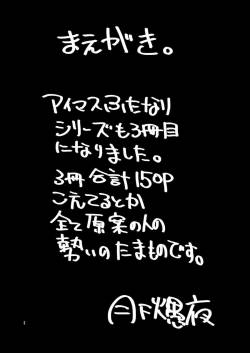 まえがき。
アイマスふたなり
シリーズも3冊目
になりました。
3冊合計150P
こえてるとか
全て原案の人の
勢いのたまものです。
月下燻夜